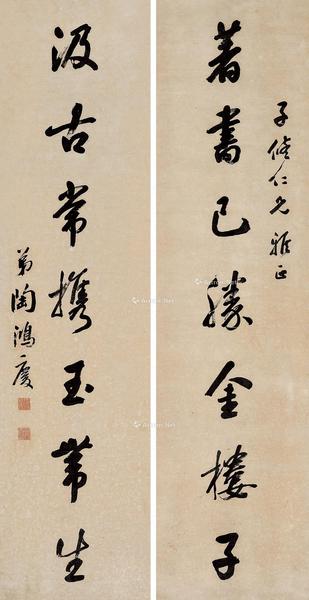 子修仁兄雅正
著書已勝金樓子
汲古常攜玉帶生
弟陶鴻慶